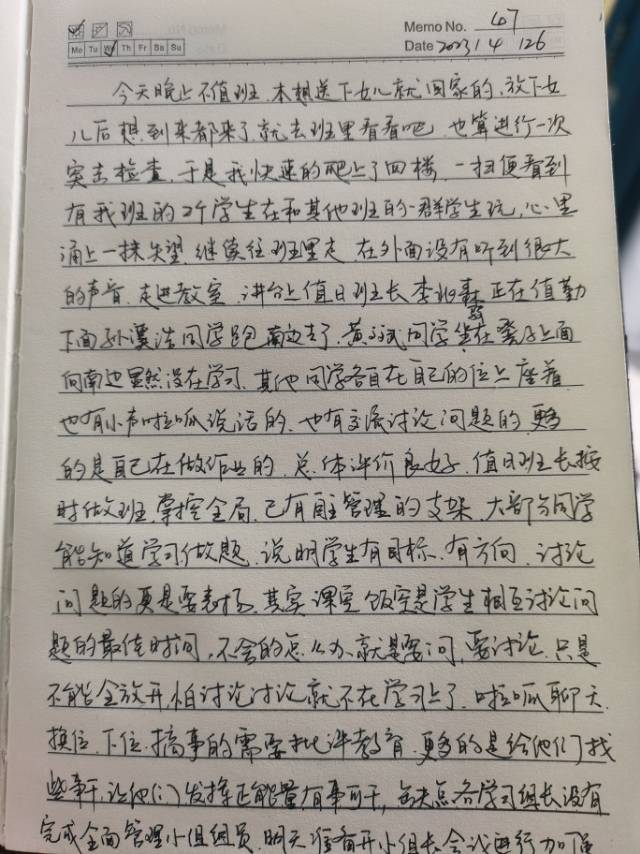 Memo No. 47
Mo Tu We Th Fr Sa Su
Date 2023 / 4 / 26
今天晚上不值班，本想送下女儿就回家的，放下女
儿后想到来都来了就去班里看看吧，也算进行一次
突击检查，于是我快速的爬上了四楼，一扫便看到
有我班的2个学生在和其他班的一群学生玩，心里
涌上一抹失望，继续往班里走，在外面没有听到很大
的声音，走进教室，讲台上值日班长李 森正在值勤
下面孙 浩同学跑南边去了，黄 斌同学坐在凳子上面
向南边显然没在学习，其他同学各自在自己的位上座着
也有小声啦呱说话的，也有交流讨论问题的，更多
的是自己在做作业的，总体评价良好，值日班长按
时做班，掌控全局，已有自主管理的支架，大部分同学
能知道学习做题，说明学生有目标，有方向，讨论
问题的更是要表扬，其实课堂饭空是学生相互讨论问
题的最佳时间，不会的怎么办就是要问，要讨论，只是
不能全放开怕讨论讨论就不在学习上了，啦呱聊天，
换位，下位，搞事的需要批评教育，更多的是给他们找
些事干，让他们发挥正能量，有事可干，缺点各学习组长没有
完成全面管理小组组员，明天准备开小组长会议进行加强